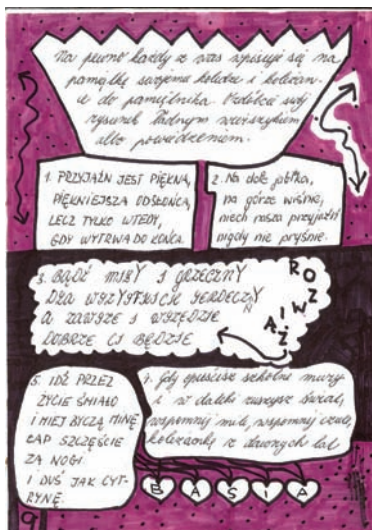 Na pewno każdy z was wpisuje się na
pamiątkę swojemu koledze i koleżan-
ce do pamiętnika. Ozdóbcie swój
rysunek ładnym wierszykiem
albo powiedzeniem.
1. PRZYJAŹŃ JEST PIĘKNA,
PIĘKNIEJSZA OD SŁOŃCA,
LECZ TYLKO WTEDY,
GDY WYTRWA DO KOŃCA.
2. Na dole jabłka,
na górze wiśnie,
niech nasza przyjaźń
nigdy nie pryśnie.
3. BĄDŹ MIŁY I GRZECZNY
DLA WSZYSTKICH SERDECZNY
A ZAWSZE I WSZĘDZIE
DOBRZE CI BĘDZIE
ROZWIĄŻ
5. IDŹ PRZEZ
ŻYCIE ŚMIAŁO
I MIEJ BYCZĄ MINĘ
ŁAP SZCZĘŚCIE
ZA NOGI
I DUŚ JAK CYT-
RYNĘ.
Gdy opuścisz szkolne mury
i w daleki ruszysz świat,
wspomnij mile, wspomnij czule,
koleżankę z dawnych lat
BASIA
9